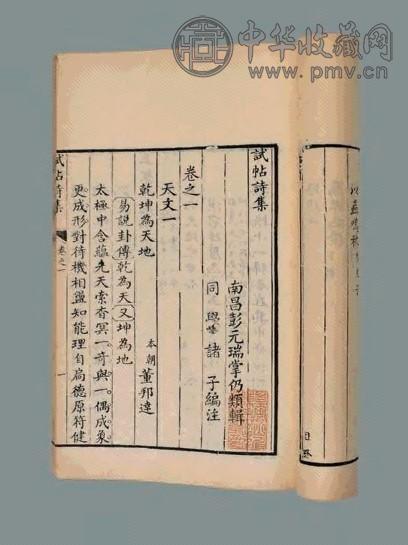 中华收藏网
www.pmv.cn
試帖詩集
南昌彭元瑞掌仍類輯
同 諸子編注
卷之一
天文一
乾坤為天地
本朝 董邦達
易說卦傳乾為天又坤為地
太極中含蘊先天索杳冥一奇與一偶成象
更成形對待機相盪知能理自扃德原符健
試帖詩集 卷之一 一